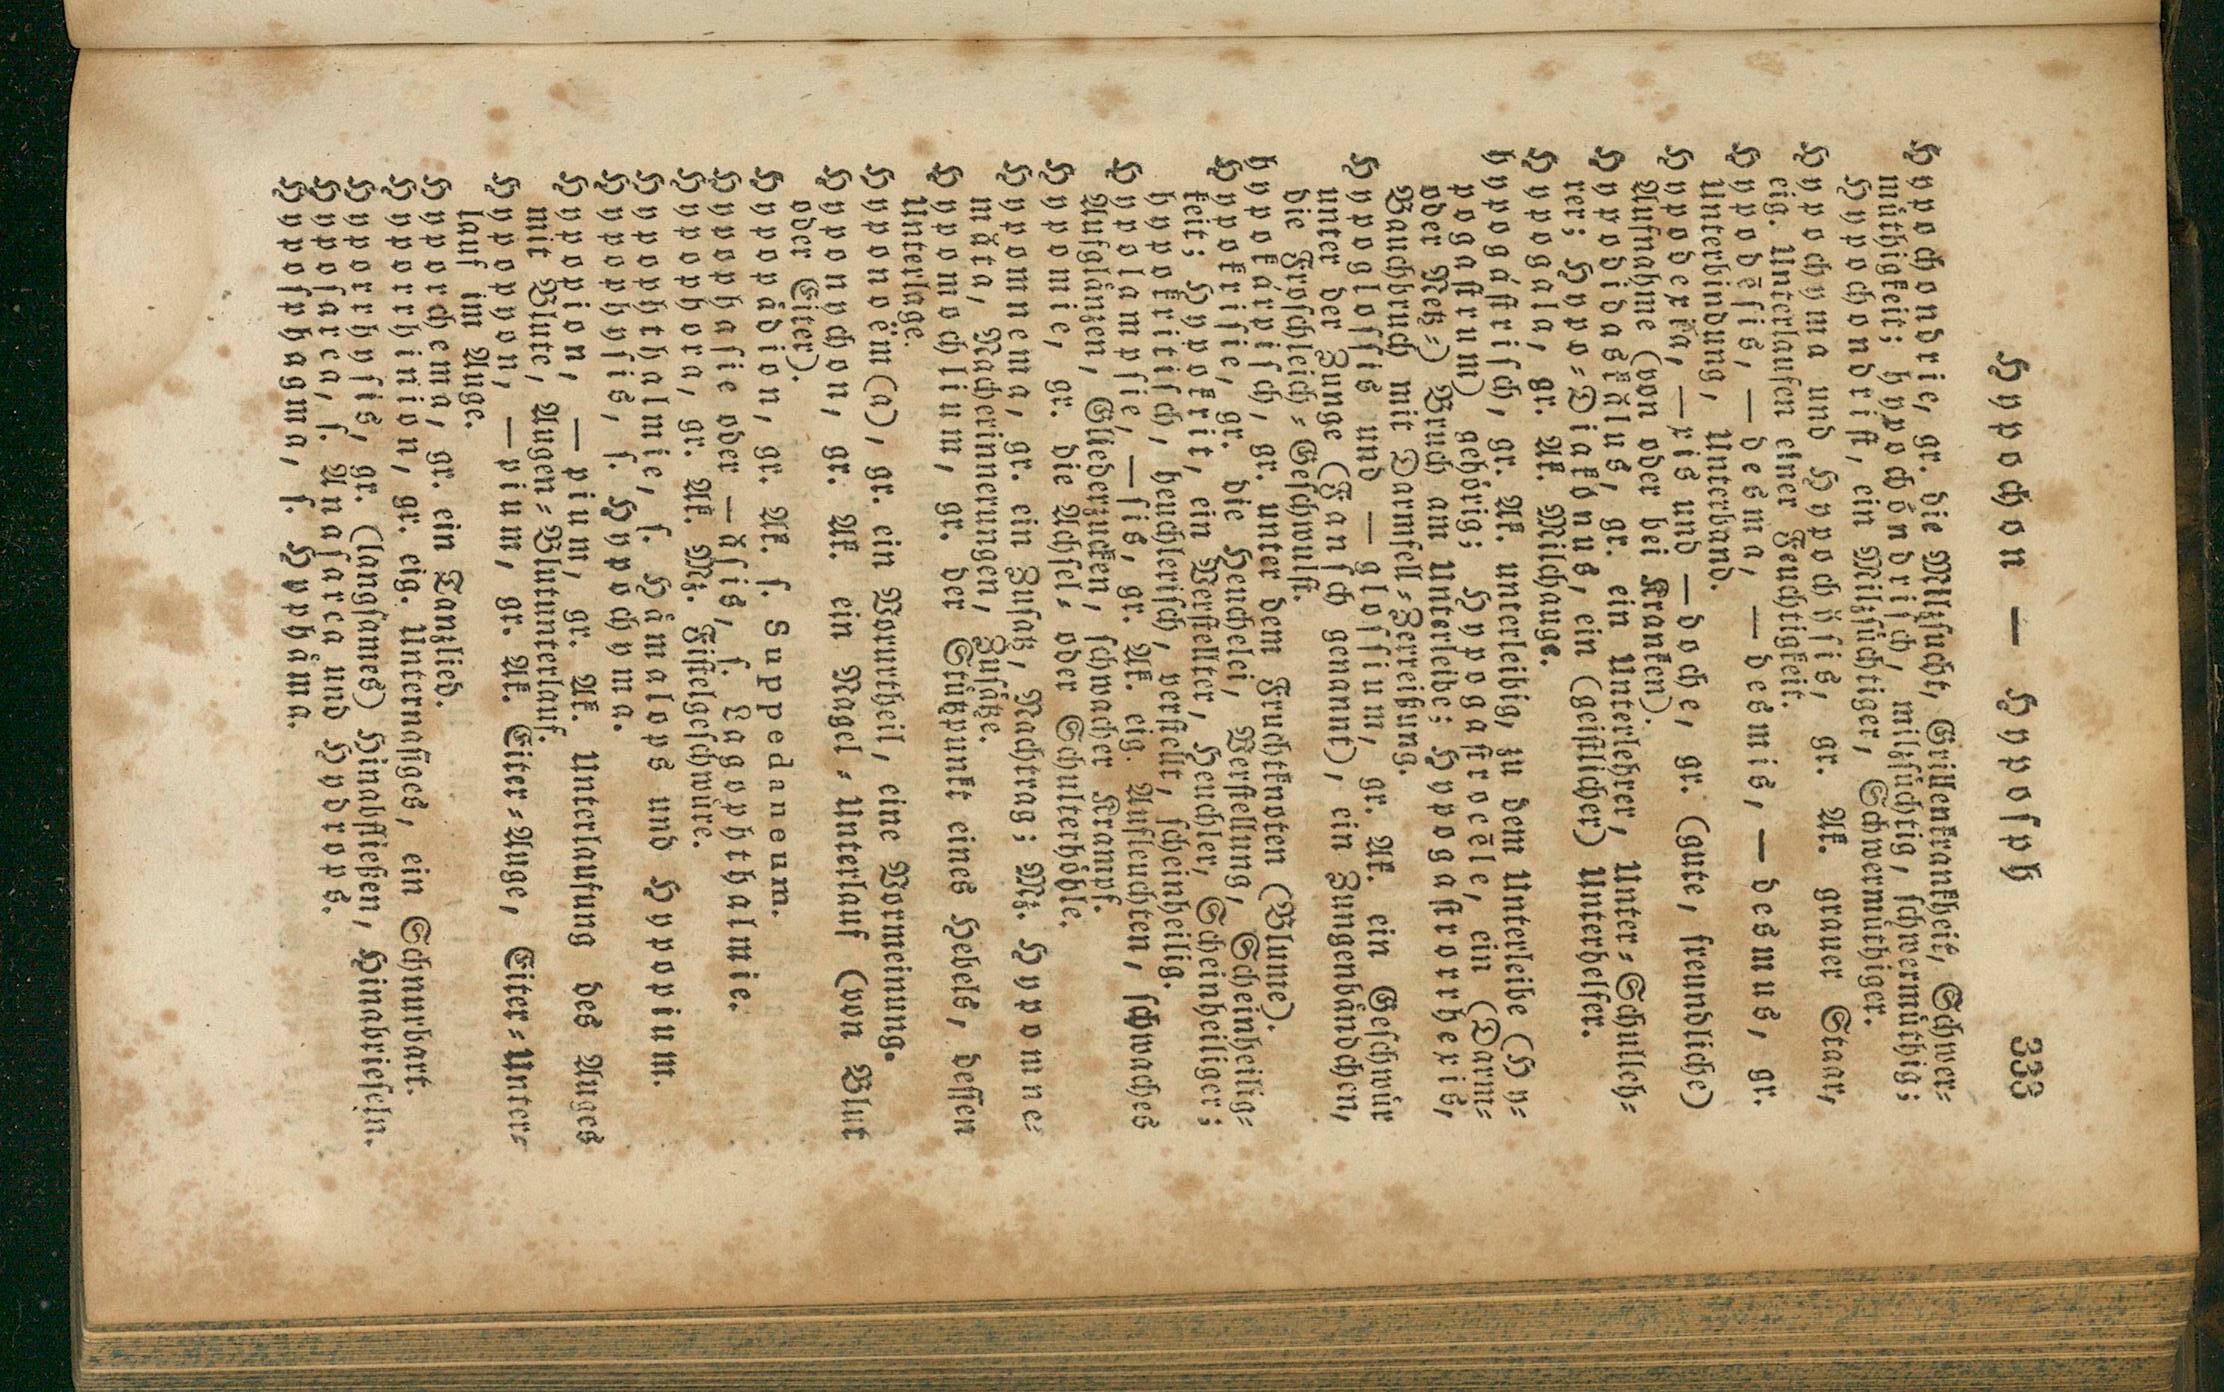 Hypochon — Hyposph 333
Hypochondrie, gr. die Milzsucht, Grillenkrankheit, Schwer-
müthigkeit; hypochöndrisch, milzsüchtig, schwermüthig;
Hypochondrist, ein Milzsüchtiger, Schwermüthiger.
Hypochyma und Hypochy̆sis, gr. Ak. grauer Staar,
eig. Unterlaufen einer Feuchtigkeit.
Hypodēsis, — desma, — desmis, — desmus, gr.
Unterbindung, Unterband.
Hypodexĭa, — xis und — doche, gr. (gute, freundliche)
Aufnahme (von oder bei Kranken).
Hypodidaskălus, gr. ein Unterlehrer, Unter-Schulleh-
rer; Hypo-Diakŏnus, ein (geistlicher) Unterhelfer.
Hypogala, gr. Ak. Milchauge.
hypogástrisch, gr. Ak. unterleibig, zu dem Unterleibe (Hy-
pogastrum) gehörig; Hypogastrocēle, ein (Darm-
oder Netz-) Bruch am Unterleibe; Hypogastrorhexis,
Bauchbruch mit Darmfell-Zerreißung.
Hypoglossis und — glossium, gr. Ak. ein Geschwür
unter der Zunge (Fansch genannt), ein Zungenbändchen,
die Froschleich-Geschwulst.
hypokárpisch, gr. unter dem Fruchtknoten (Blume).
Hypokrisie, gr. die Heuchelei, Verstellung, Scheinheilig-
keit; Hypokrit, ein Verstellter, Heuchler, Scheinheiliger;
hypokritisch, heuchlerisch, verstellt, scheinheilig.
Hypolampsie, — sis, gr. Ak. eig. Aufleuchten, schwaches
Aufglänzen, Gliederzucken, schwacher Krampf.
Hypomie, gr. die Achsel- oder Schulterhöhle.
Hypomnema, gr. ein Zusatz, Nachtrag; Mz. Hypomne-
măta, Nacherinnerungen, Zusätze.
Hypomochlium, gr. der Stützpunkt eines Hebels, dessen
Unterlage.
Hyponoëm(a), gr. ein Vorurtheil, eine Vormeinung.
Hyponychon, gr. Ak. ein Nagel-Unterlauf (von Blut
oder Eiter).
Hypopădion, gr. Ak. s. Suppedaneum.
Hypophasie oder — ăsis, s. Lagophthalmie.
Hypophora, gr. Ak. Mz. Fistelgeschwüre.
Hypophthalmie, s. Hämalops und Hypopium.
Hypophysis, s. Hypochyma.
Hypopion, — pium, gr. Ak. Unterlaufung des Auges
mit Blute, Augen-Blutunterlauf.
Hypopyon, — pium, gr. Ak. Eiter-Auge, Eiter-Unter-
lauf im Auge.
Hyporchema, gr. ein Tanzlied.
Hyporrhinion, gr. eig. Unternasiges, ein Schnurbart.
Hyporrhysis, gr. (langsames) Hinabfließen, Hinabrieseln.
Hyposarca, s. Anasarca und Hydrops.
Hyposphagma, s. Hyphäma.